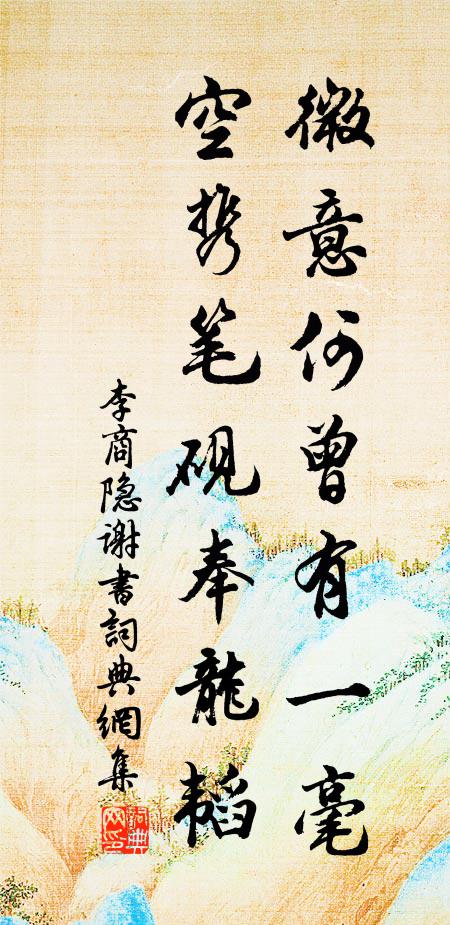 微意何曾有一毫
空携笔砚奉龍韬
李商隐谢书詞典網集
詞典网印